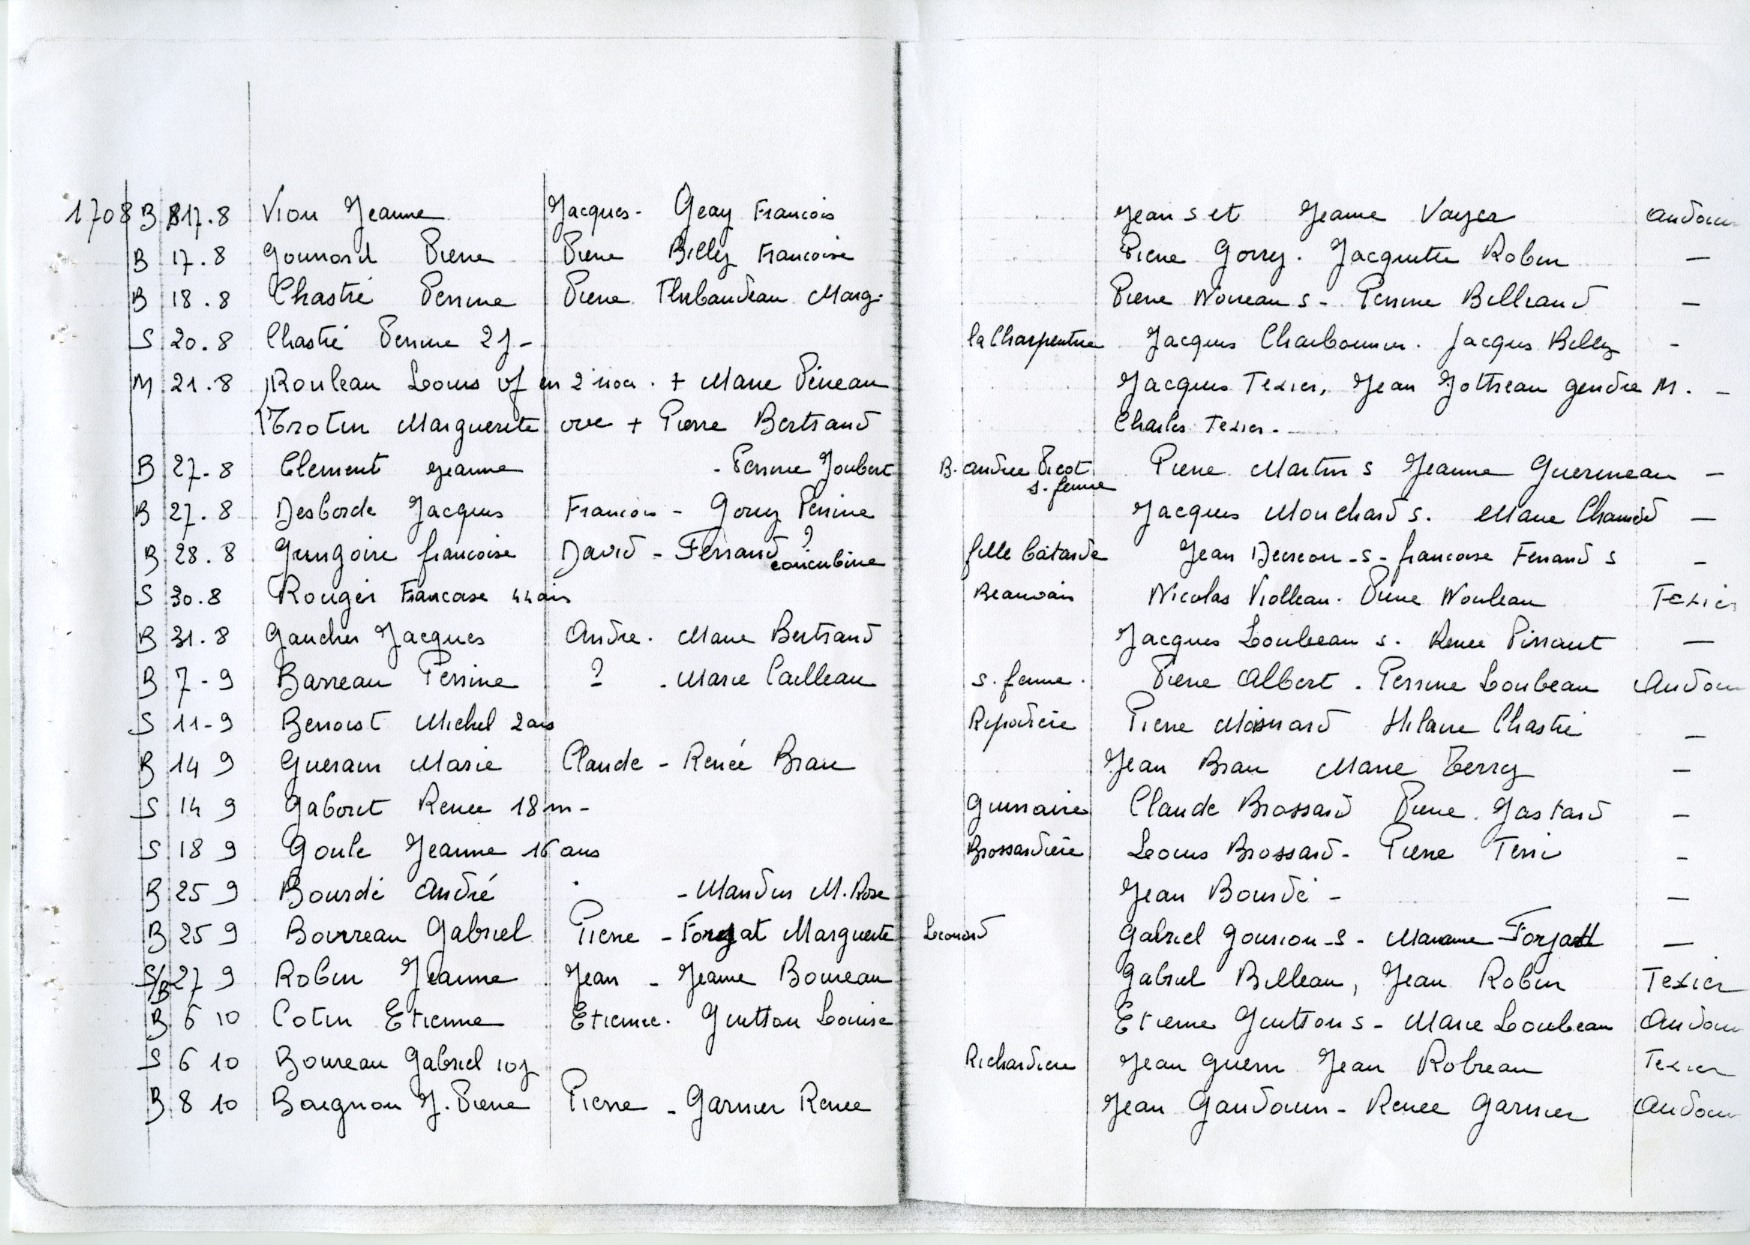 1708 B 17.8 Vion Jeanne Jacques - Geay Francois Jean s et Jeanne Voyer Andouin
B 17.8 Gounord Pierre Pierre Billy Francoise Pierre Gorry. Jacquette Robin —
B 18.8 Chastié Perrine Pierre Thibaudeau Marg. Pierre Noireau s - Perrine Billeaud —
S 20.8 Chastié Perrine 2j - la Charpentrie Jacques Charbonnier. Jacques Billy -
M 21.8 Rouleau Louis vf en 2 noc. + Marie Pineau Jacques Texier, Jean Jottreau gendre M. -
Trotin Marguerite vve + Pierre Bertraud Charles Texier -
B 27-8 Clement Jeanne - Perrine Joubert B. Andree Picot s. ferme Pierre Martin s Jeanne Guerineau —
B 27.8 Desborde Jacques Francois - Gorry Perrine Jacques Mouchard s. Marie —
B 28.8 Gringoire francoise David - Ferrand ? concubine fille batarde Jean s - francoise Ferrand s -
S 30.8 Rouger Francoise 44 ans Beauvais Nicolas Violleau. Pierre Nouleau Texier
B 31.8 Gaucher Jacques Andre. Marie Bertraud Jacques Loubeau s. Renee Pissaut —
B 7-9 Barreau Perrine ? - Marie Cailleau s. ferme. Pierre Albert. Perrine Loubeau Andouin
S 11-9 Benoist Michel 2 ans Pierre Moinard Hilaire Chastié -
B 14 9 Guerain Marie Claude - Renée Brau Jean Brau Marie Terry —
S 14 9 Gaboret Renee 18 m - Guinaire Claude Brossard Pierre Gastard -
S 18 9 Goule Jeanne 16 ans Brossardière Louis Brossard - Pierre Terri -
B 25 9 Bourdé André - Mandin M. Rose Jean Bourdé - —
B 25 9 Bourreau Gabriel Pierre - Forgat Marguerite Leonard Gabriel Gourion - s - Marianne Forjatt —
S/B 27 9 Robin Jeanne Jean - Jeanne Boureau Gabriel Billeau, Jean Robin Texier
B 6 10 Cotin Etienne Etienne. Guitton Louise Etienne Guitton s - Marie Loubeau Andouin
S 6 10 Boureau Gabriel 10j Richardiere Jean Guerin Jean Robreau Texier
B 8 10 Bougnon J. Pierre Pierre - Garnier Renee Jean Gaudouin - Renee Garnier Andouin